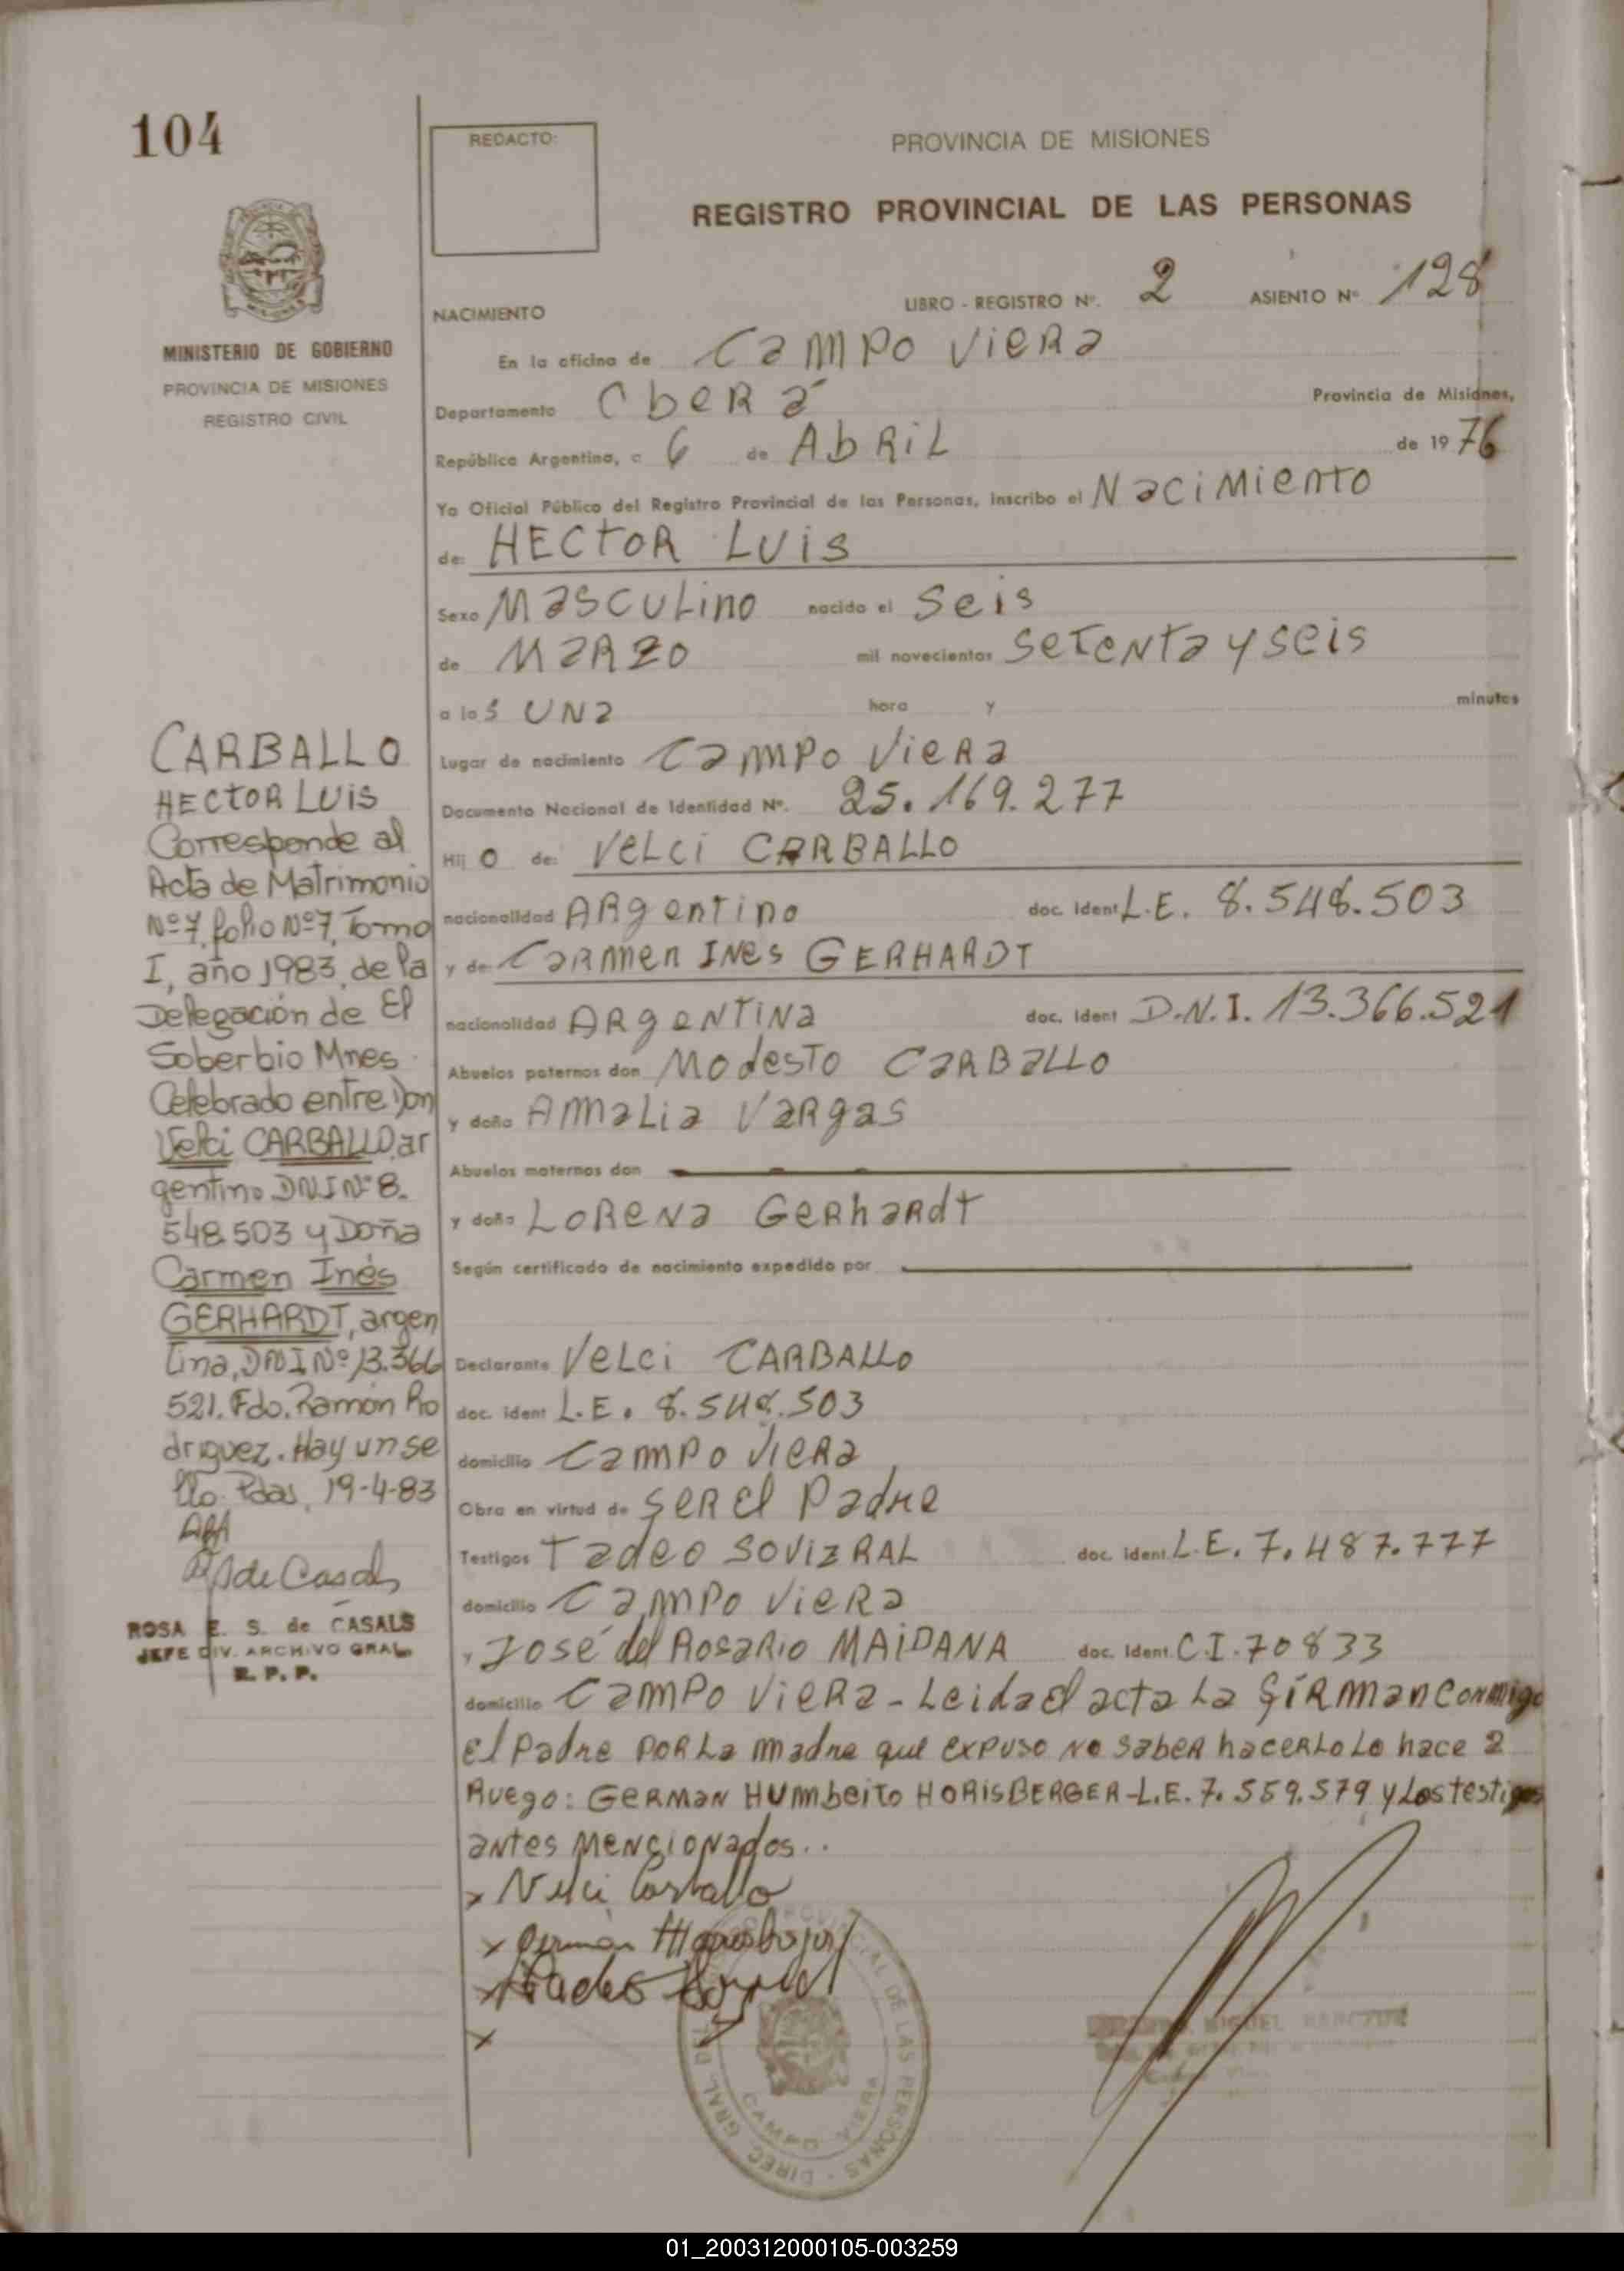 104
REDACTO:
PROVINCIA DE MISIONES
REGISTRO PROVINCIAL DE LAS PERSONAS
MINISTERIO DE GOBIERNO
PROVINCIA DE MISIONES
REGISTRO CIVIL
NACIMIENTO
LIBRO - REGISTRO Nº. 2 ASIENTO Nº 128
En la oficina de Campo Viera
Departamento Oberá Provincia de Misiones,
República Argentina, a 6 de Abril de 1976
Yo Oficial Público del Registro Provincial de las Personas, inscribo el Nacimiento
de: HECTOR LUIS
Sexo Masculino nacido el Seis
de Marzo mil novecientos Setenta y Seis
a las una hora y minutos
Lugar de nacimiento Campo Viera
Documento Nacional de Identidad Nº. 25.169.277
Hijo de: Velci CARBALLO
nacionalidad Argentino doc. Ident L.E. 8.548.503
y de Carmen Ines GERHARDT
nacionalidad Argentina doc. Ident D.N.I. 13.366.521
Abuelos paternos don Modesto Carballo
y doña Amalia Vargas
Abuelos maternos don
y doña Lorena Gerhardt
Según certificado de nacimiento expedido por
Declarante Velci CARBALLO
doc. ident L.E. 8.548.503
domicilio Campo Viera
Obra en virtud de ser el Padre
Testigos Tadeo SOVIZRAL doc. ident. L.E. 7.487.777
domicilio Campo Viera
y José del Rosario MAIDANA doc. Ident. C.I. 70833
domicilio Campo Viera - Leida el acta la firman conmigo
el Padre por la madre que expuso no saber hacerlo lo hace a
Ruego: German Humbeito HORISBERGER - L.E. 7.559.579 y los testigos
antes mencionados..
x Velci Carballo
x German
x
x
CARBALLO
HECTOR LUIS
Corresponde al
Acta de Matrimonio
Nº 7, folio Nº 7, Tomo
I, año 1983, de la
Delegación de El
Soberbio Mnes
Celebrado entre Don
Velci CARBALLO, ar
gentino DNI Nº 8.
548.503 y Doña
Carmen Inés
GERHARDT, argen
tina, DNI Nº 13.366
521. Fdo. Ramón Ro
driguez. Hay un se
llo. Pdas, 19-4-83
de Casals
ROSA E. S. de CASALS
JEFE DIV. ARCHIVO GRAL.
R. P. P.
DIREC. GRAL. DEL REG. PROVINCIAL DE LAS PERSONAS
CAMPO VIERA
MIGUEL
01_200312000105-003259